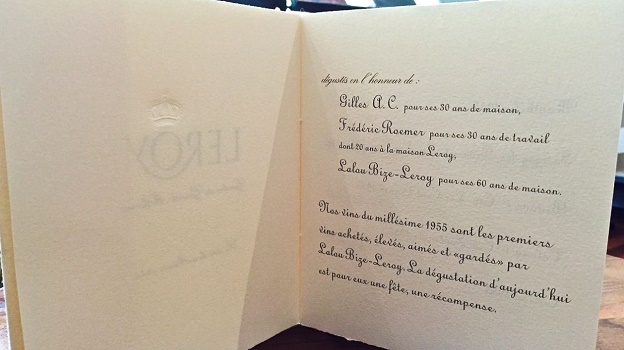 LEROY
dégustés en l'honneur de :
Gilles A.C. pour ses 30 ans de maison,
Frédéric Roemer pour ses 30 ans de travail
dont 20 ans à la maison Leroy,
Lalou Bize-Leroy pour ses 60 ans de maison.
Nos vins du millésime 1955 sont les premiers
vins achetés, élevés, aimés et «gardés» par
Lalou Bize-Leroy. La dégustation d'aujourd'hui
est pour eux une fête, une récompense.